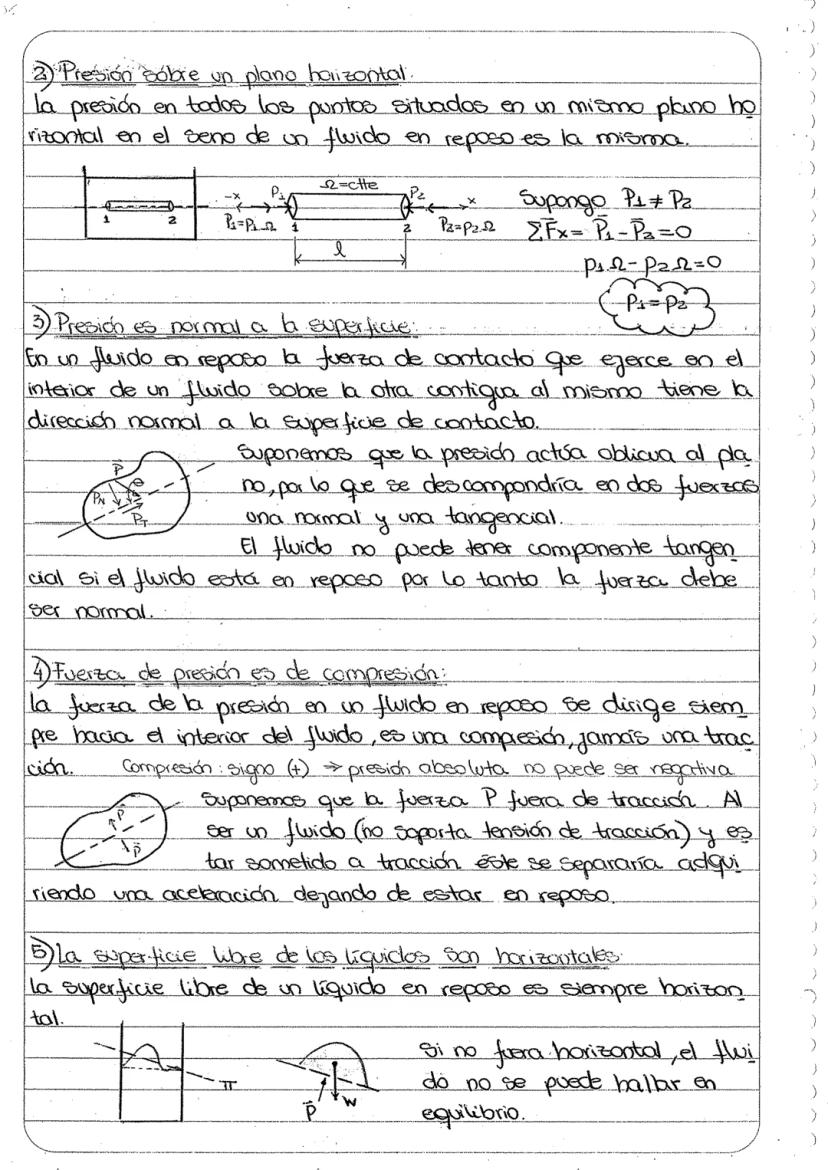 2) Presión sobre un plano horizontal.
la presión en todos los puntos situados en un mismo plano ho
rizontal en el seno de un fluido en reposo es la misma.
1 2
-x P1 Ω=ctte P2 x
P1=P1.Ω 1 2 P2=p2.Ω
l
Supongo P1 ≠ P2
ΣF⃗x= P⃗1-P⃗2=0
p1.Ω-p2.Ω=0
P1=P2
3) Presión es normal a la superficie:
En un fluido en reposo la fuerza de contacto que ejerce en el
interior de un fluido sobre la otra contigua al mismo tiene la
dirección normal a la superficie de contacto.
P⃗ θ
PN
PT
Suponemos que la presión actúa oblicua al pla
no, por lo que se descompondría en dos fuerzas
una normal y una tangencial.
El fluido no puede tener componente tangen
cial si el fluido está en reposo por lo tanto la fuerza debe
ser normal.
4) Fuerza de presión es de compresión:
la fuerza de la presión en un fluido en reposo se dirige siem
pre hacia el interior del fluido, es una compresión, jamás una trac
ción. Compresión: signo (+) → presión absoluta no puede ser negativa
P⃗
P⃗
Suponemos que la fuerza P fuera de tracción. Al
ser un fluido (no soporta tensión de tracción) y es
tar sometido a tracción éste se separaría adqui
riendo una aceleración dejando de estar en reposo.
5) la superficie libre de los líquidos son horizontales.
la superficie libre de un líquido en reposo es siempre horizon
tal.
π
P⃗ W
Si no fuera horizontal, el flui
do no se puede hallar en
equilibrio.